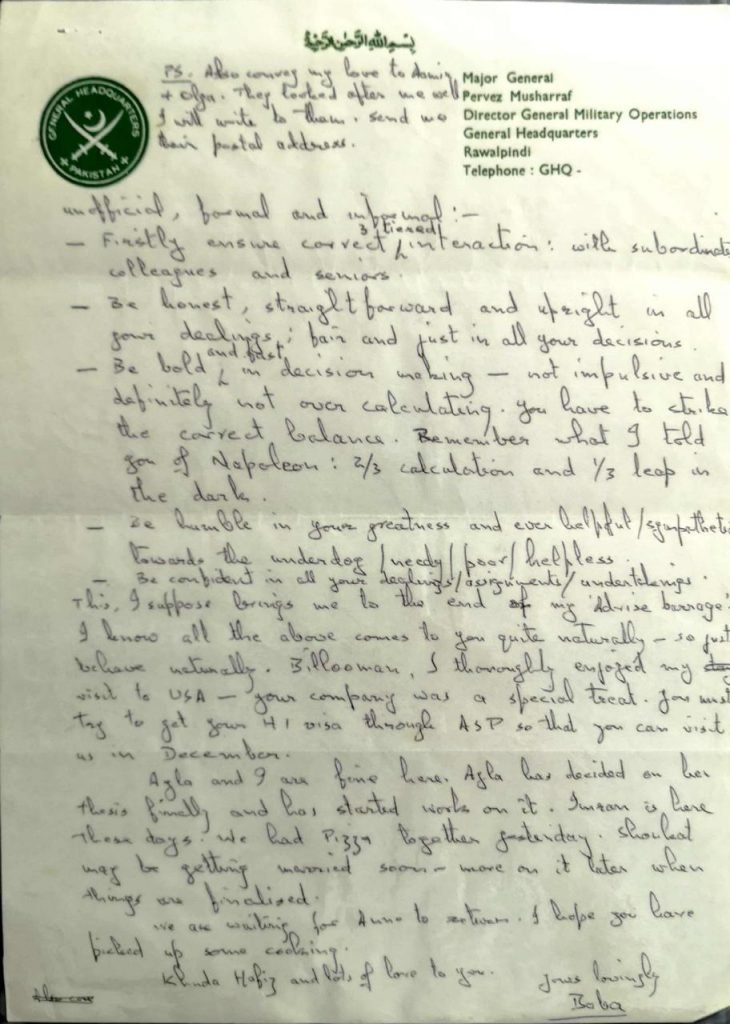 بسم الله الرحمن الرحيم
GENERAL HEADQUARTERS
PAKISTAN
Major General
Pervez Musharraf
Director General Military Operations
General Headquarters
Rawalpindi
Telephone : GHQ -
PS. Also convey my love to Asmin
+ Olga. They looked after me well
I will write to them. send me
their postal address.
unofficial, formal and informal :-
3 tiered
- Firstly ensure correct interaction : with subordinate
colleagues and seniors.
- Be honest, straightforward and upright in all
your dealings ; fair and just in all your decisions.
and fast
- Be bold in decision making - not impulsive and
definitely not over calculating. You have to strike
the correct balance. Remember what I told
you of Napoleon : 2/3 calculation and 1/3 leap in
the dark.
- Be humble in your greatness and ever helpful/sympathetic
towards the underdog/needy/poor/helpless.
- Be confident in all your dealings/assignments/undertakings.
This, I suppose brings me to the end of my 'Advise barrage'.
I know all the above comes to you quite naturally - so just
behave naturally. Billooman, I thoroughly enjoyed my
visit to USA - your company was a special treat. You must
try to get your H1 visa through ASP so that you can visit
us in December.
Ayla and I are fine here. Ayla has decided on her
thesis finally and has started work on it. Imran is here
these days. We had Pizza together yesterday. Shoukat
may be getting married soon - more on it later when
things are finalised.
We are waiting for Anno to return. I hope you have
picked up some cooking.
Khuda Hafiz and lots of love to you.
Yours lovingly
Boba
Also con